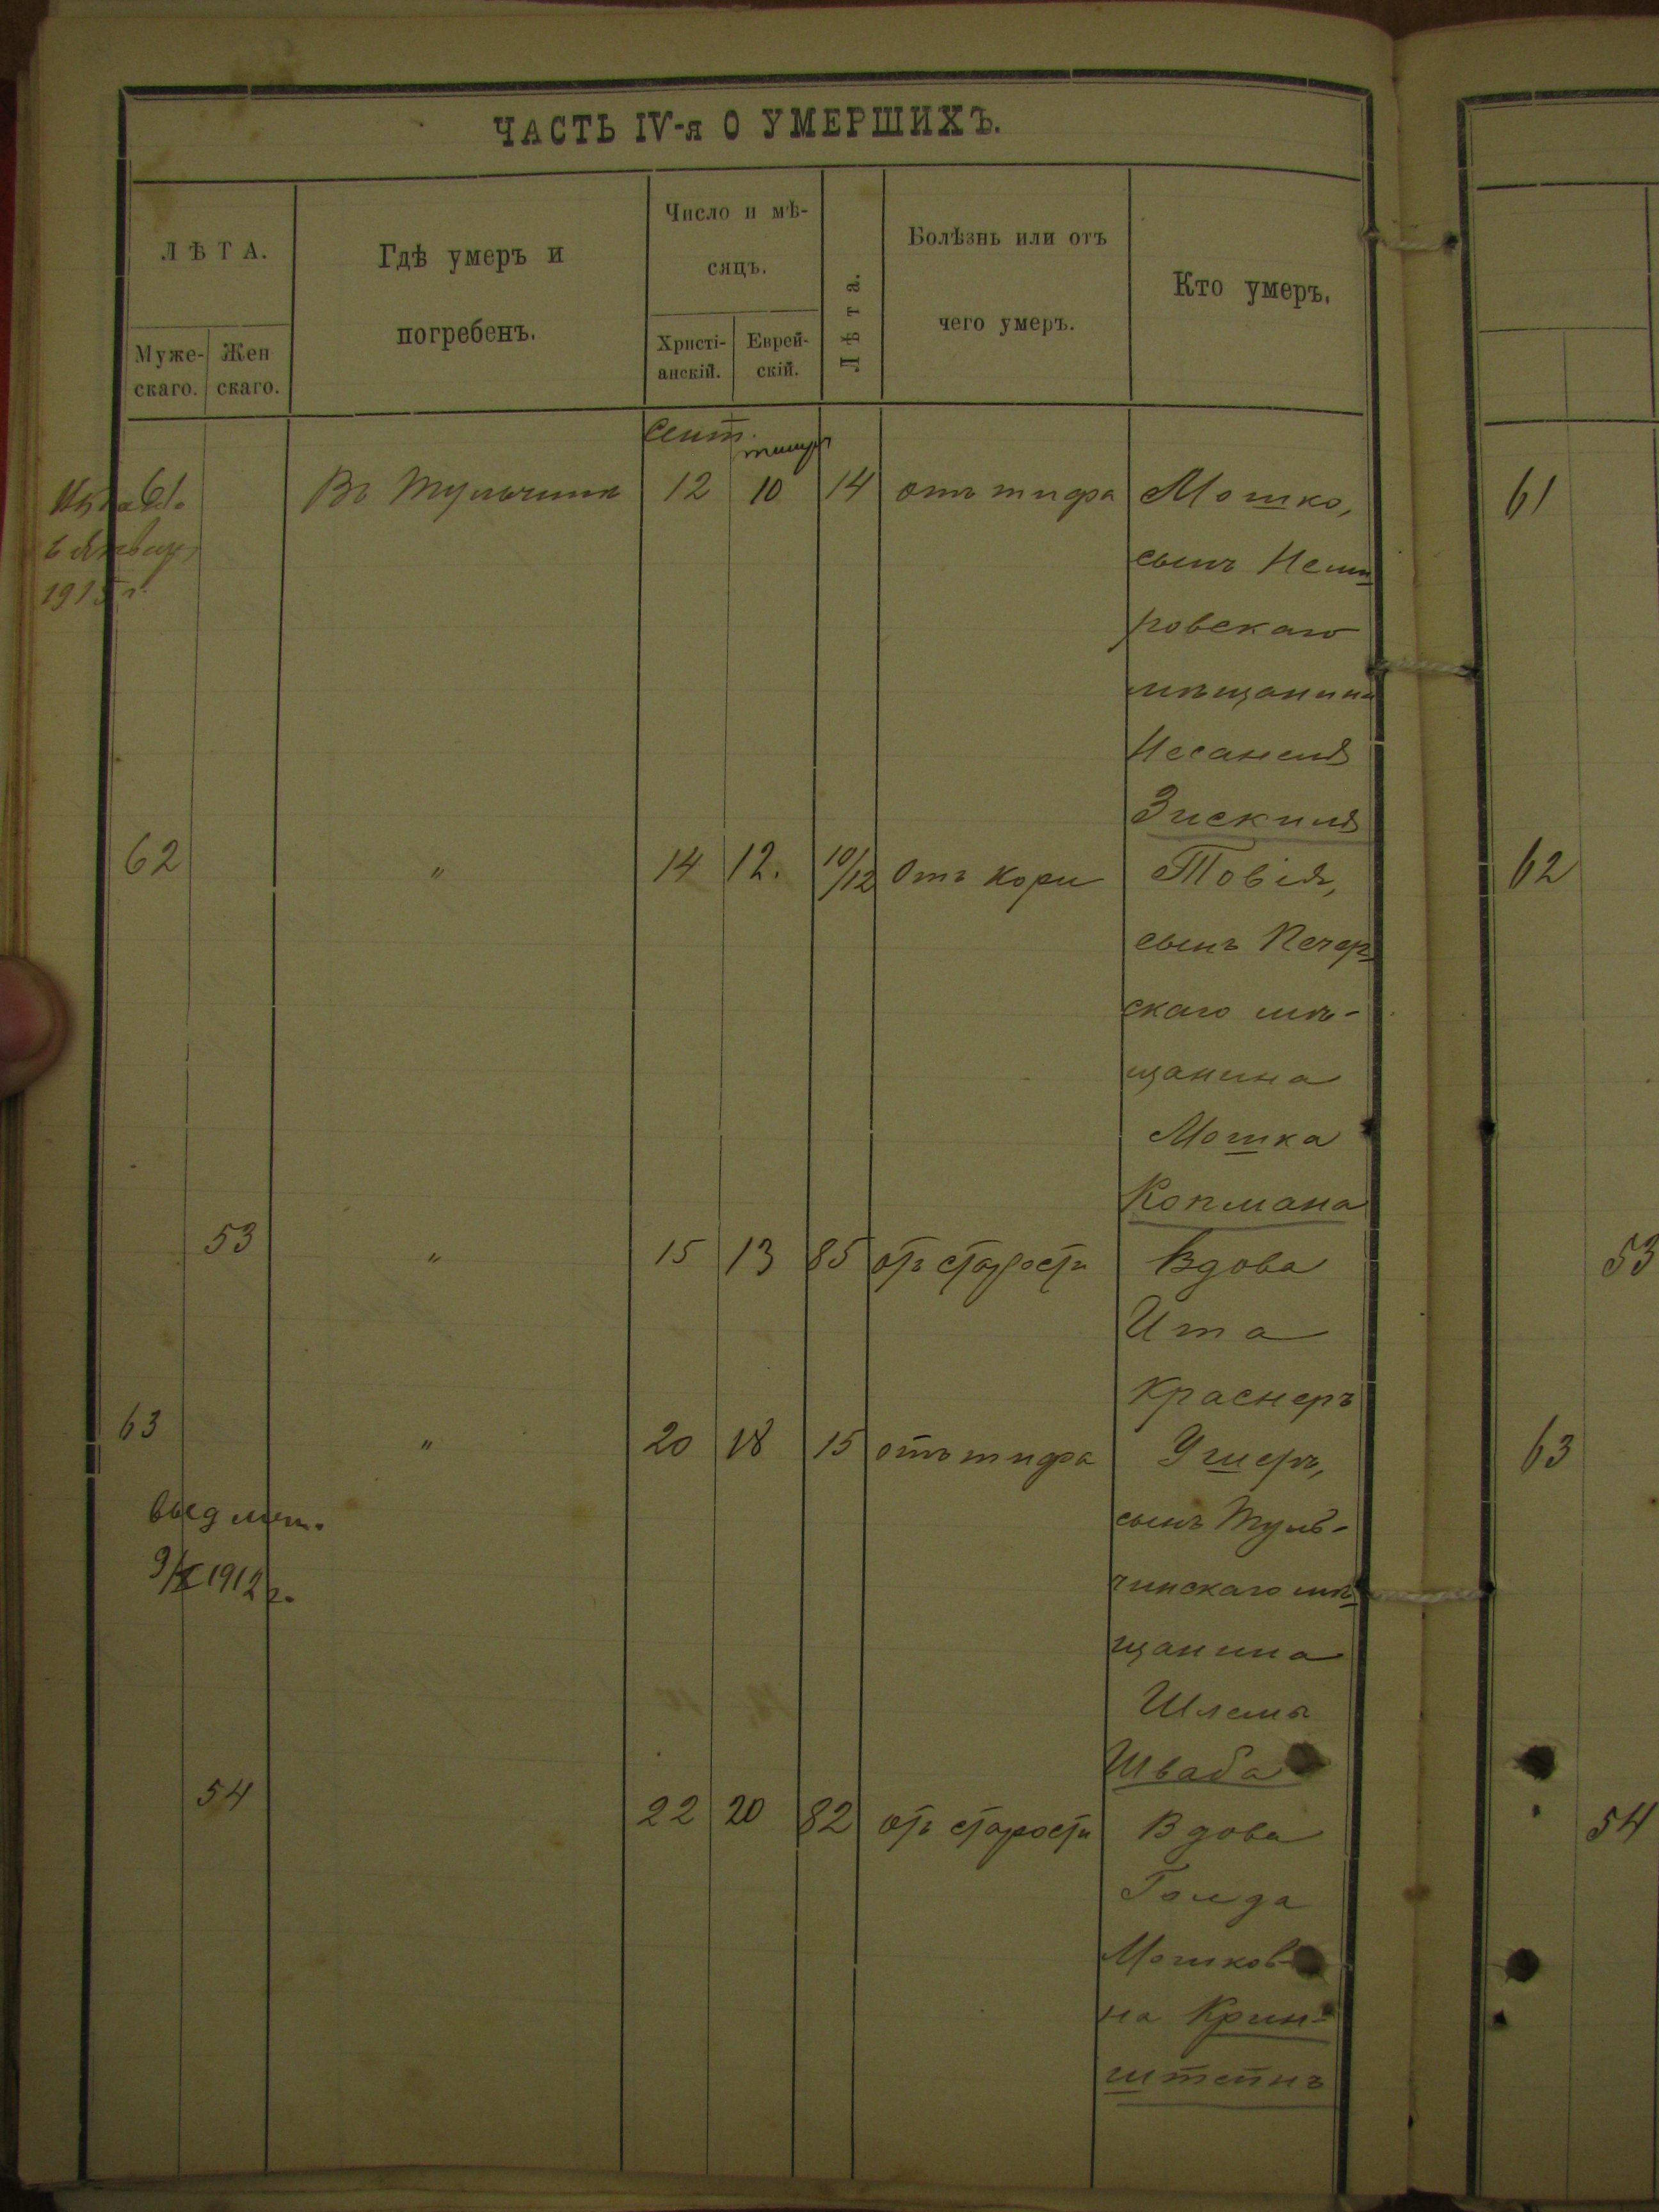 ЧАСТЬ IV-я О УМЕРШИХЪ.
ЛѢТА.
Муже-
скаго.
Жен
скаго.
Гдѣ умеръ и
погребенъ.
Число и мѣ-
сяцъ.
Христі-
анскій.
Еврей-
скій.
Лѣта.
Болѣзнь или отъ
чего умеръ.
Кто умеръ,
Сент.
тишри
61
Въ Тульчинѣ 12 10 14 отъ тифа Мошко,
1915 г.
сынъ Неми
ровскаго
мѣщанина
Несанеля
Зискиля
62 " 14 12. 10/12 Отъ кори Товія,
сынъ Печер
скаго мѣ-
щанина
Мошка
Копмана
53 " 15 13 85 отъ старости Вдова
Ита
Краснеръ
63 " 20 18 15 отъ тифа Ушеръ,
выд мет.
9/X 1912 г.
сынъ Туль-
чинскаго мѣ
щанина
Шлемы
Шваба
54 22 20 82 отъ старости Вдова
Голда
Мошков
на Крин-
штейнъ
61
62
53
63
54